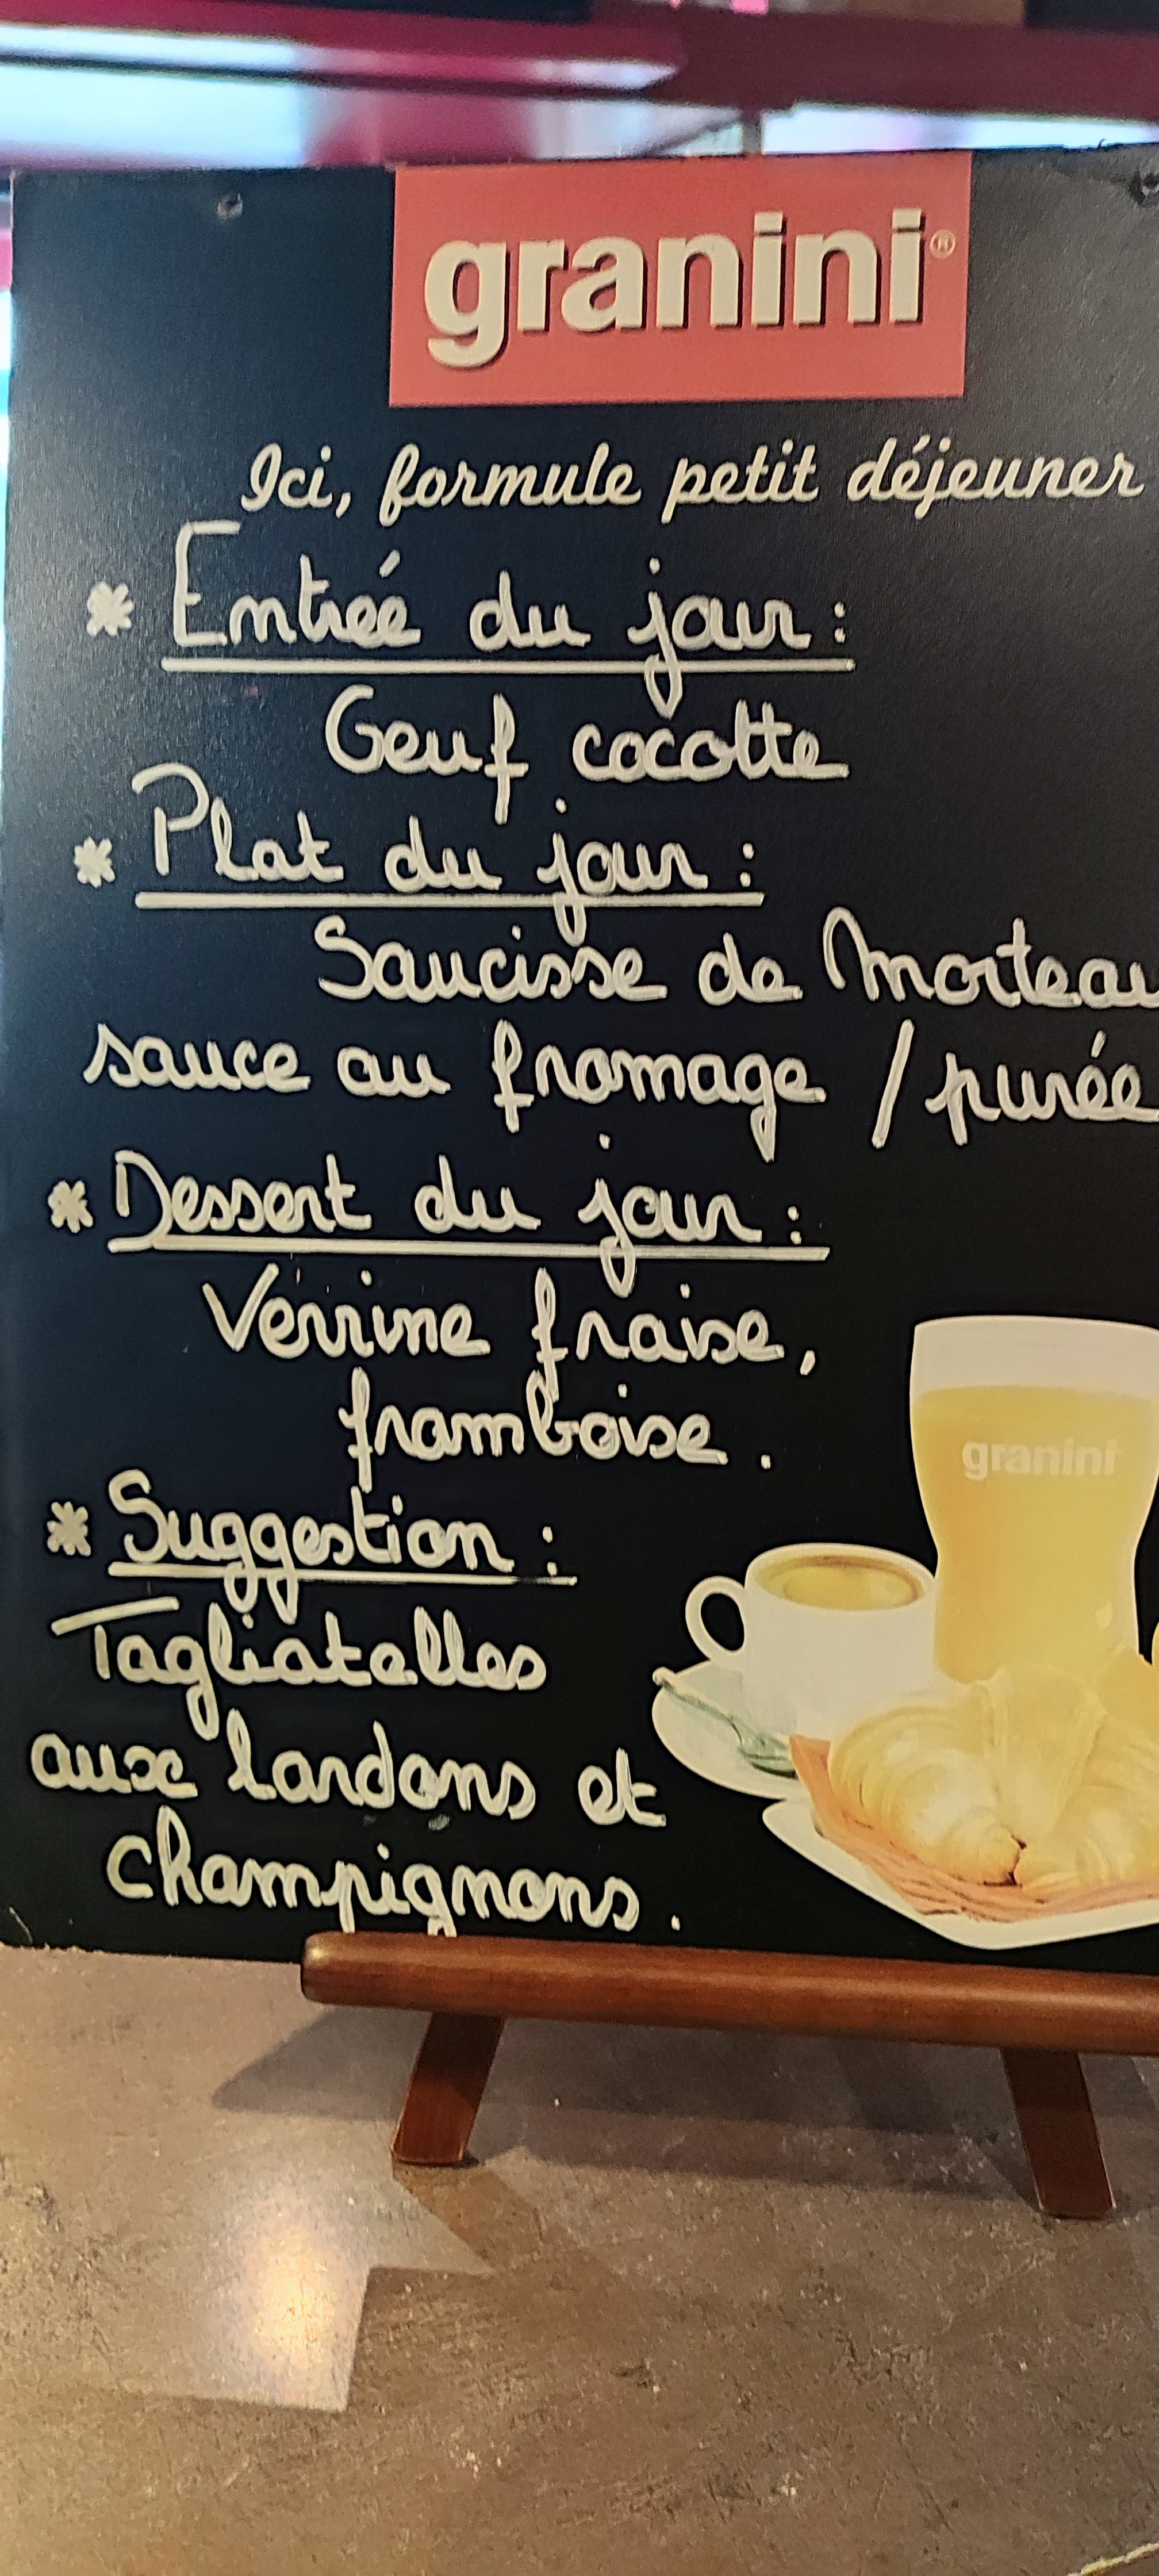 granini®
Ici, formule petit déjeuner
* Entrée du jour :
Oeuf cocotte
* Plat du jour :
Saucisse de Morteau
sauce au fromage / purée
* Dessert du jour :
Verrine fraise,
framboise.
* Suggestion :
Tagliatelles
aux lardons et
champignons.
granini